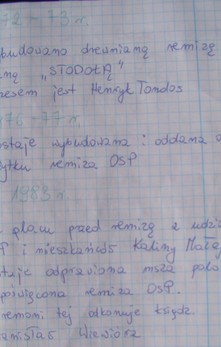 72 - 73 r.
ybudowano drewnianą remizę
ną „STODOŁĄ"
esem jest Henryk Tondos
976 - 77 r.
staje wybudowana i oddana d
ytku remiza OSP
1983 r.
placu przed remizą z udzi
P i mieszkańców Kaliny Małej
tuje odprawiona msza polo
poświęcona remiza OSP.
remonii tej dokonuje ksiądz
anisław Wiewióra